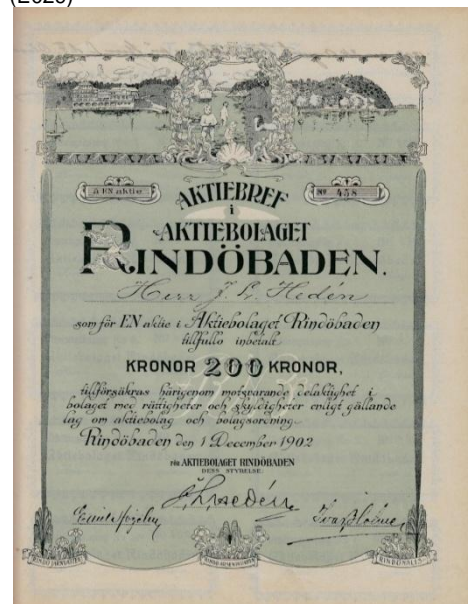 (2023)
å EN aktie
Nº 458
AKTIEBREF
i
AKTIEBOLAGET
RINDÖBADEN.
Herr J. Hedén
som för EN aktie i Aktiebolaget Rindöbaden
tillfullo inbetalt
KRONOR 200 KRONOR,
tillförsäkras härigenom motsvarande delaktighet i
bolaget med rättigheter och skyldigheter enligt gällande
lag om aktiebolag och bolagsordning.
Rindöbaden den 1 December 1902
FÖR AKTIEBOLAGET RINDÖBADEN
DESS STYRELSE: